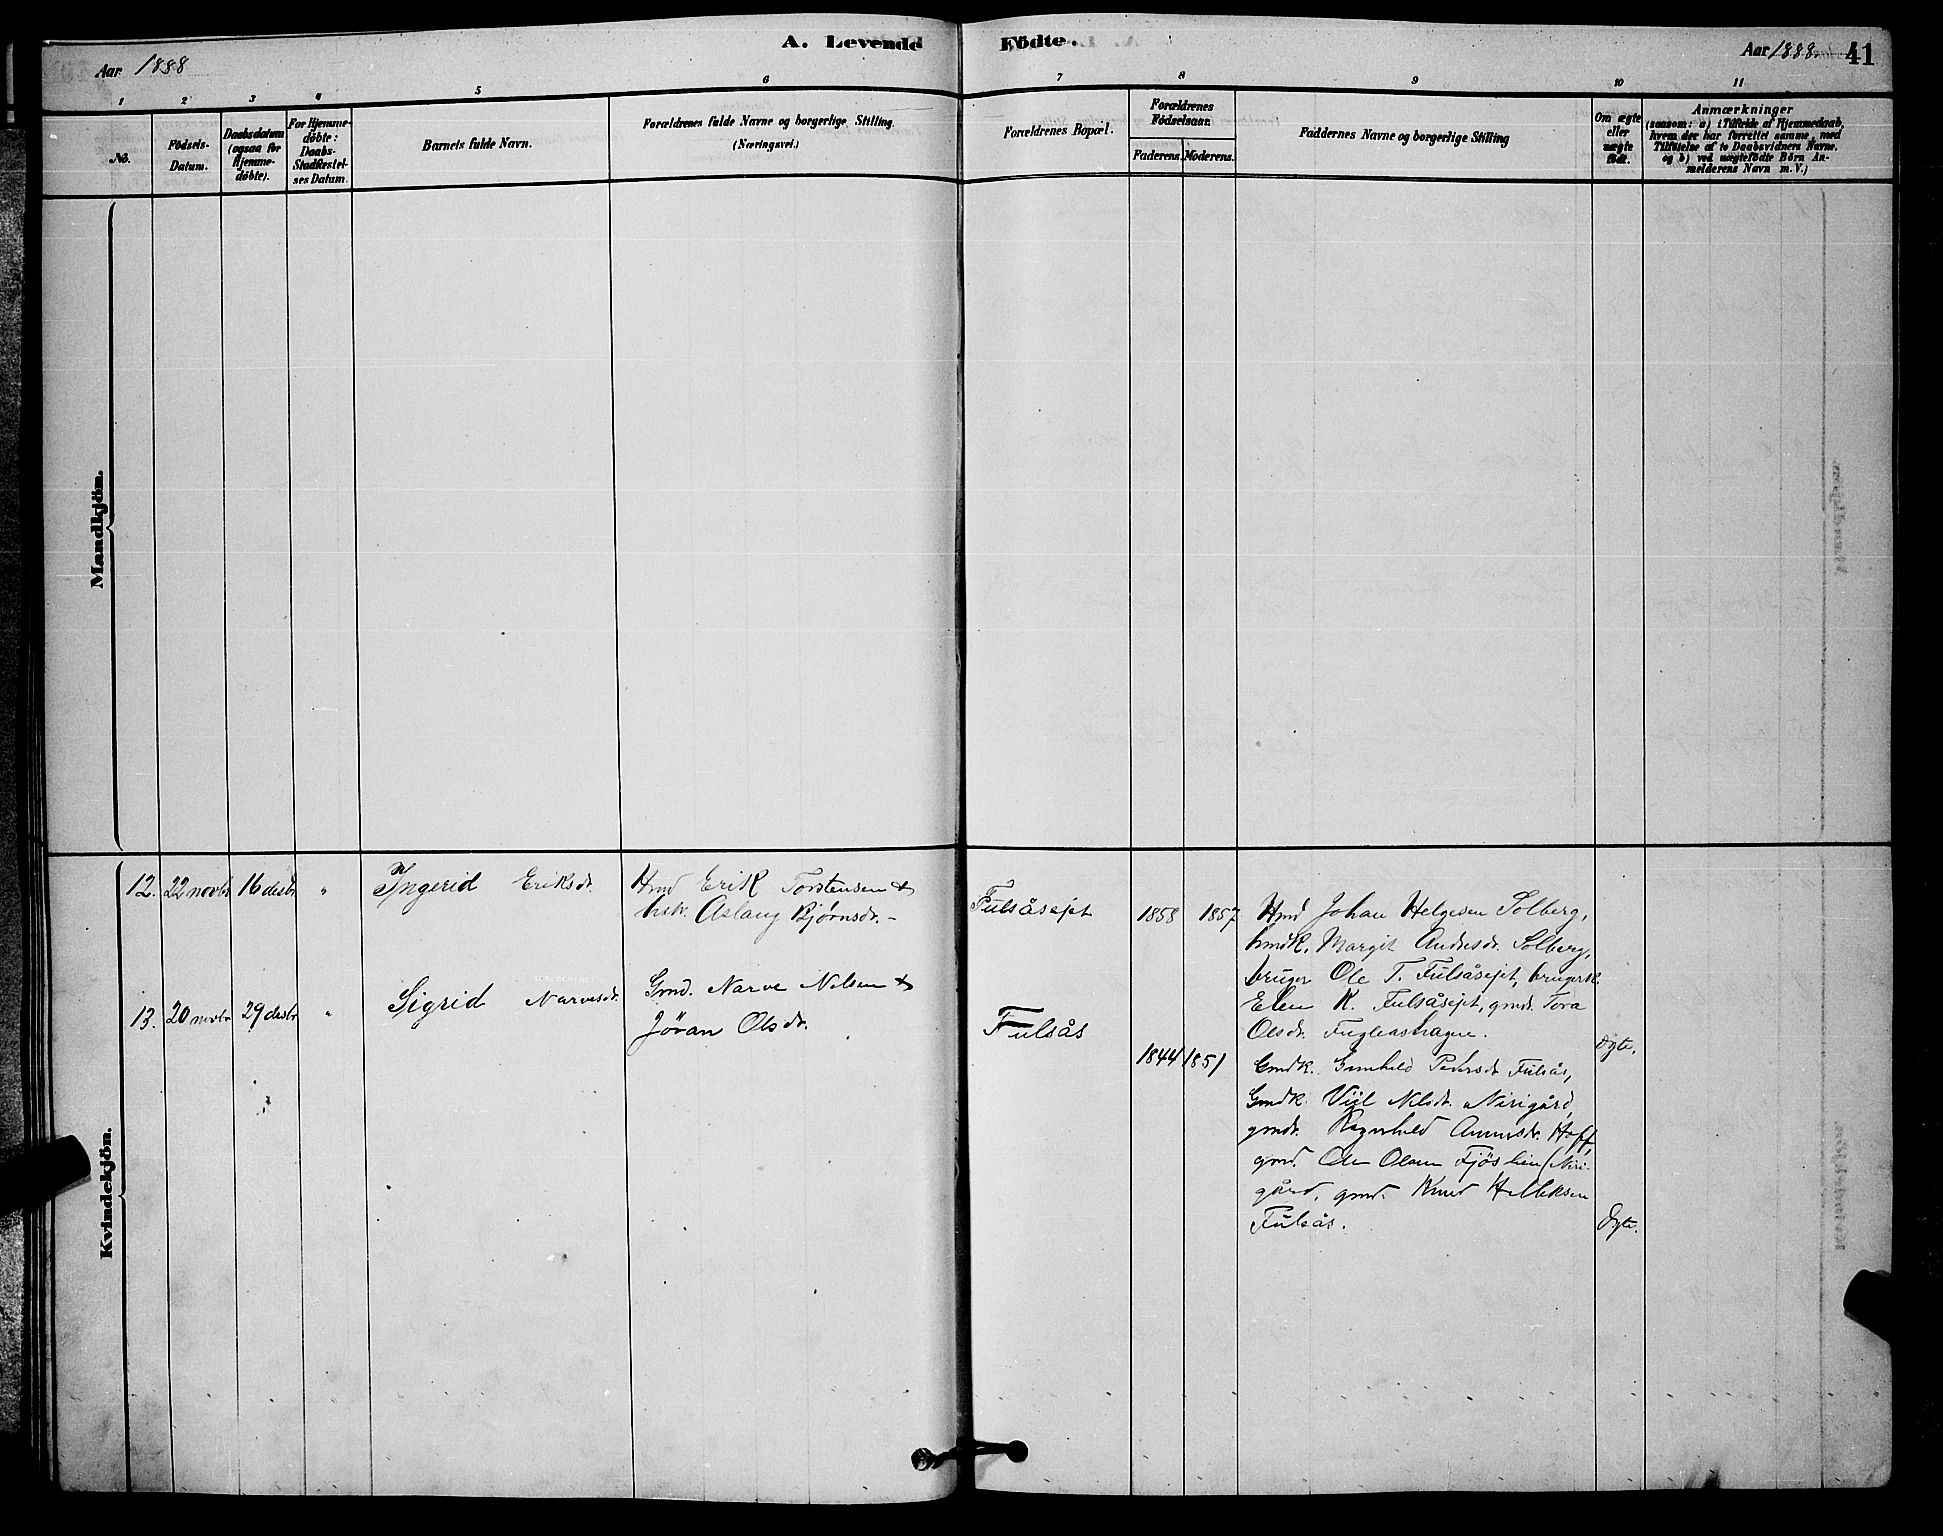 A. Levende Födte.
Aar 1888
Aar 1888. 41
1 2 3 4 5 6 7 8 9 10 11
No.
Födsels-
Datum.
Daabsdatum
(ogsaa for
Hjemme-
döbte).
For Hjemme-
döbte:
Daabs-
Stadfæstel-
ses Datum.
Barnets fulde Navn.
Forældrenes fulde Navne og borgerlige Stilling
(Næringsvei.)
Forældrenes Bopæl.
Forældrenes
Födselsaar.
Faderens. Moderens.
Faddernes Navne og borgerlige Stilling
Om ægte
eller
uægte
födt.
Anmærkninger
(saasom: a) i Tilfælde af Hjemmedaab,
hvem der har forrettet samme, med
Tilföielse af to Daabsvidners Navne,
og b) ved uægtefödte Börn An-
melderens Navn m.V.)
Mandkjön.
Kvindekjön.
12. 22 novbr 16 desbr "
Ingerid Eriksdr.
Hmd Erik Torstensen &
hstr. Aslaug Bjørnsdr. -
Fulsåsejet
1858 1857
Hmd Johan Helgesen Solberg,
hmdk. Margit Andrsdr. Solberg,
bruger Ole T. Fulsåsejet, brugerk.
Elen K. Fulsåsejet, gmdr. Tora
Olsdr.
Ægte.
13. 20 novbr 29 desbr "
Sigrid Narvesdr.
Gmd. Narve Nilsen &
Jöran Olsdr.
Fulsås
1844 1851
Gmdk. Gunhild Pedersdr Fulsås,
Gmdk. Nilsdr. Nirigård,
gmdr. Ragnhild Hoff,
gmd. Ole Olsen Fjöslien (Niri-
gård, gmd. Knud
Fulsås.
Ægte.